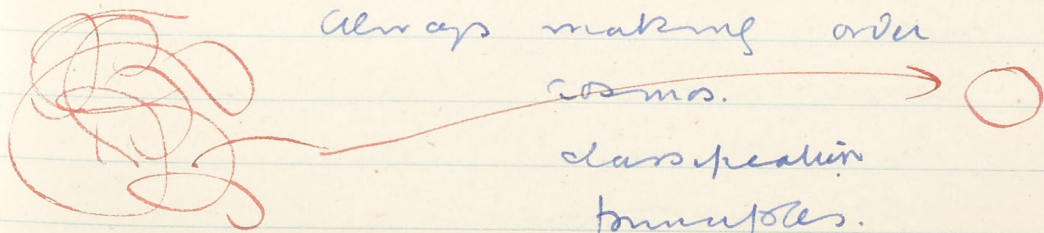 always making order
cosmos.
classification
principles.